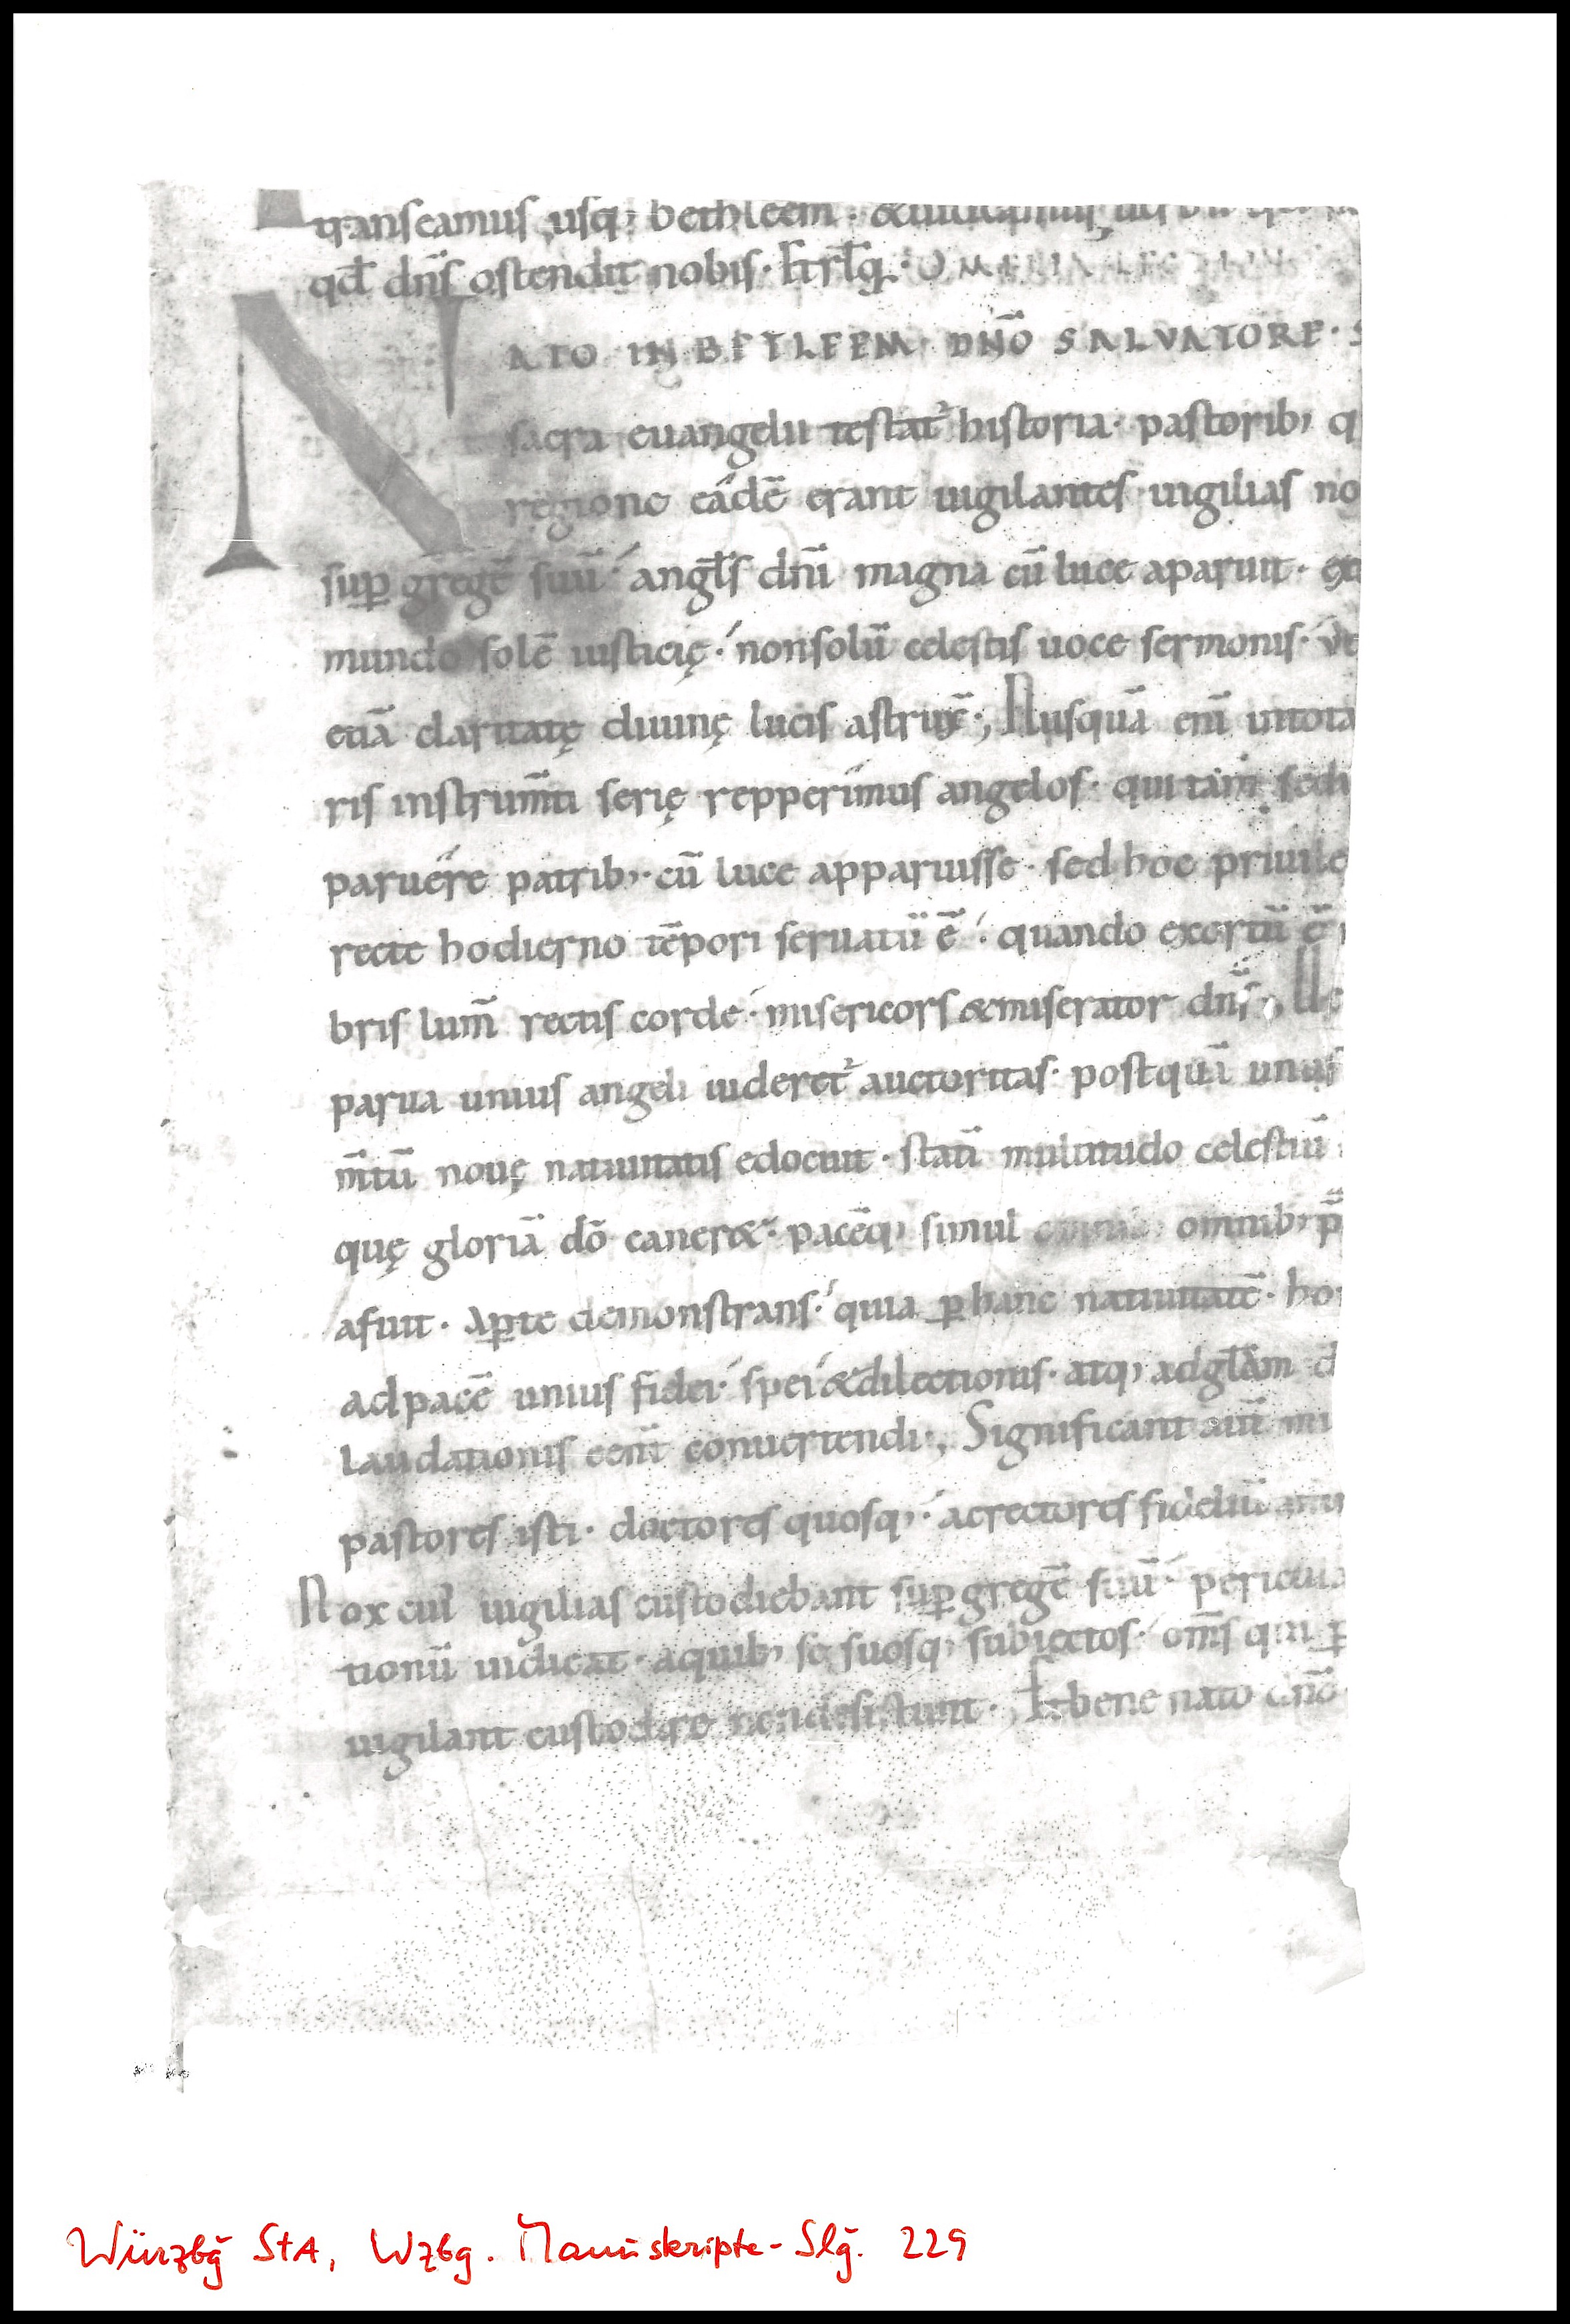 transeamus usq; bethleem · &
qd̄ dn̄s ostendit nobis · & rl̄q · OMELIA
NATO IN BETLEEM · DN̄O SALVATORE · S
sacra euangelii testat᷒ historia · pastorib; q
regione eádē erant uigilantes · uigilias no
suꝑ gregē suū ·́ angl̄s dn̄i magna cū luce aparuit · ex
mundo solē iusticię ·́ non solū celestis uoce sermonis · ve
etiā claritatę diuinę lucis astrux̄ ·, Nusquā eni̅ in tota
ris instrum̄ti serię repperímus angelos · qui tam sedu
paruére patrib; · cū luce apparuisse · sed hoc priuile
recte hodierno tēpori seruatū ē ·́ quando exortū ē
bris lum̄ rectis corde ·́ misericors & miserator dn̄s ·, Ne
parua unius angeli uideret᷒ auctoritas · postquā unus
m̄tū nouę natiuitatis edocuit · statī multitudo celestiū
quę gloriā dō caner& · pacēq; simul omnib; p̄
afuit · Aꝑte demonstrans ·́ quia ꝑ hanc natiuitatē · ho
ad pacē unius fidei ·́ spei ·́ & dilectionis · atq; ad gl̄am d
laudationis een̄t conuertendi ·, Significant aut̄ mi
pastores isti · doctores quosq; ·́ ac rectores fideliū
Nox cui᷒ uigilias custodiebant suꝑ gregē suū ·́ pericula
tionū indicat · a quib; se suosq; subiectos ·́ om̄s qui ꝑ
uigilant custodire non desistunt ·, Et bene nato dn̄o
Würzbg̃ StA, Wzbg. Manuskripte-Slg̃. 229